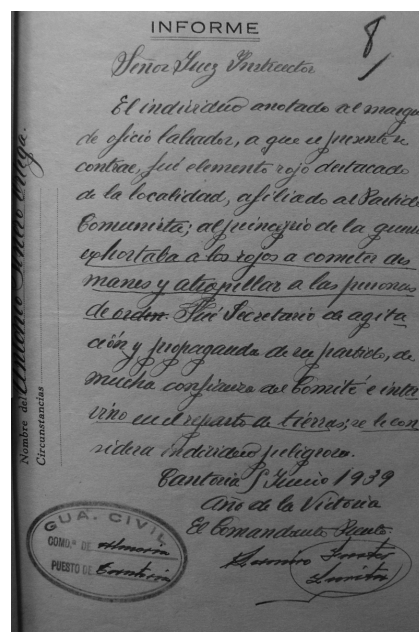 INFORME
8
Señor Juez Instructor
El individuo anotado al margen
de oficio labrador, a que el presente se
contrae, fué elemento rojo destacado
de la localidad, afiliado al Partido
Comunista; al principio de la guerra
exhortaba a los rojos a cometer des
manes y atropillar a las personas
de orden. Fué Secretario de agita
ción y propaganda de su partido, de
mucha confianza del Comité é inter
vino en el reparto de tierras; se le con
sidera individuo peligroso.
Cantoria 5 Junio 1939
Año de la Victoria
El Comandante Puesto.
Nombre del Antonio
Circunstancias
GUA. CIVIL
COMD.ª DE Almería
PUESTO DE Cantoria